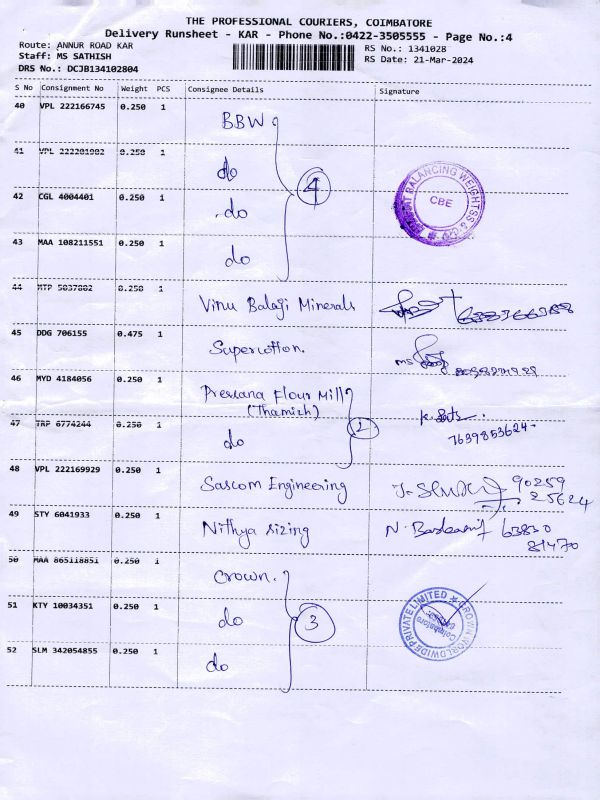 THE PROFESSIONAL COURIERS, COIMBATORE
Delivery Runsheet - KAR - Phone No.:0422-3505555 - Page No.:4
Route: ANNUR ROAD KAR
RS No.: 1341028
Staff: MS SATHISH
RS Date: 21-Mar-2024
DRS No.: DCJB134102804
S No Consignment No Weight PCS Consignee Details Signature
40 VPL 222166745 0.250 1 BBW
41 VPL 222201902 0.250 1 do
42 CGL 4004401 0.250 1 do
4
BHARAT BALANCING WEIGHTSS & CO
CBE
43 MAA 108211551 0.250 1 do
44 MTP 5037802 0.250 1 Vinu Balaji Minerals
45 DDG 706155 0.475 1 Supercotton.
46 MYD 4184056 0.250 1 Flour Mill
47 TRP 6774244 0.250 1 do 2
7639853624
48 VPL 222169929 0.250 1 Sascom Engineering 90259
25624
49 STY 6041933 0.250 1 Nithya sizing N. 63830
81470
50 MAA 865118851 0.250 1 Crown.
51 KTY 10034351 0.250 1 do 3
CROWN WORLDWIDE PRIVATE LIMITED
Coimbatore
52 SLM 342054855 0.250 1 do